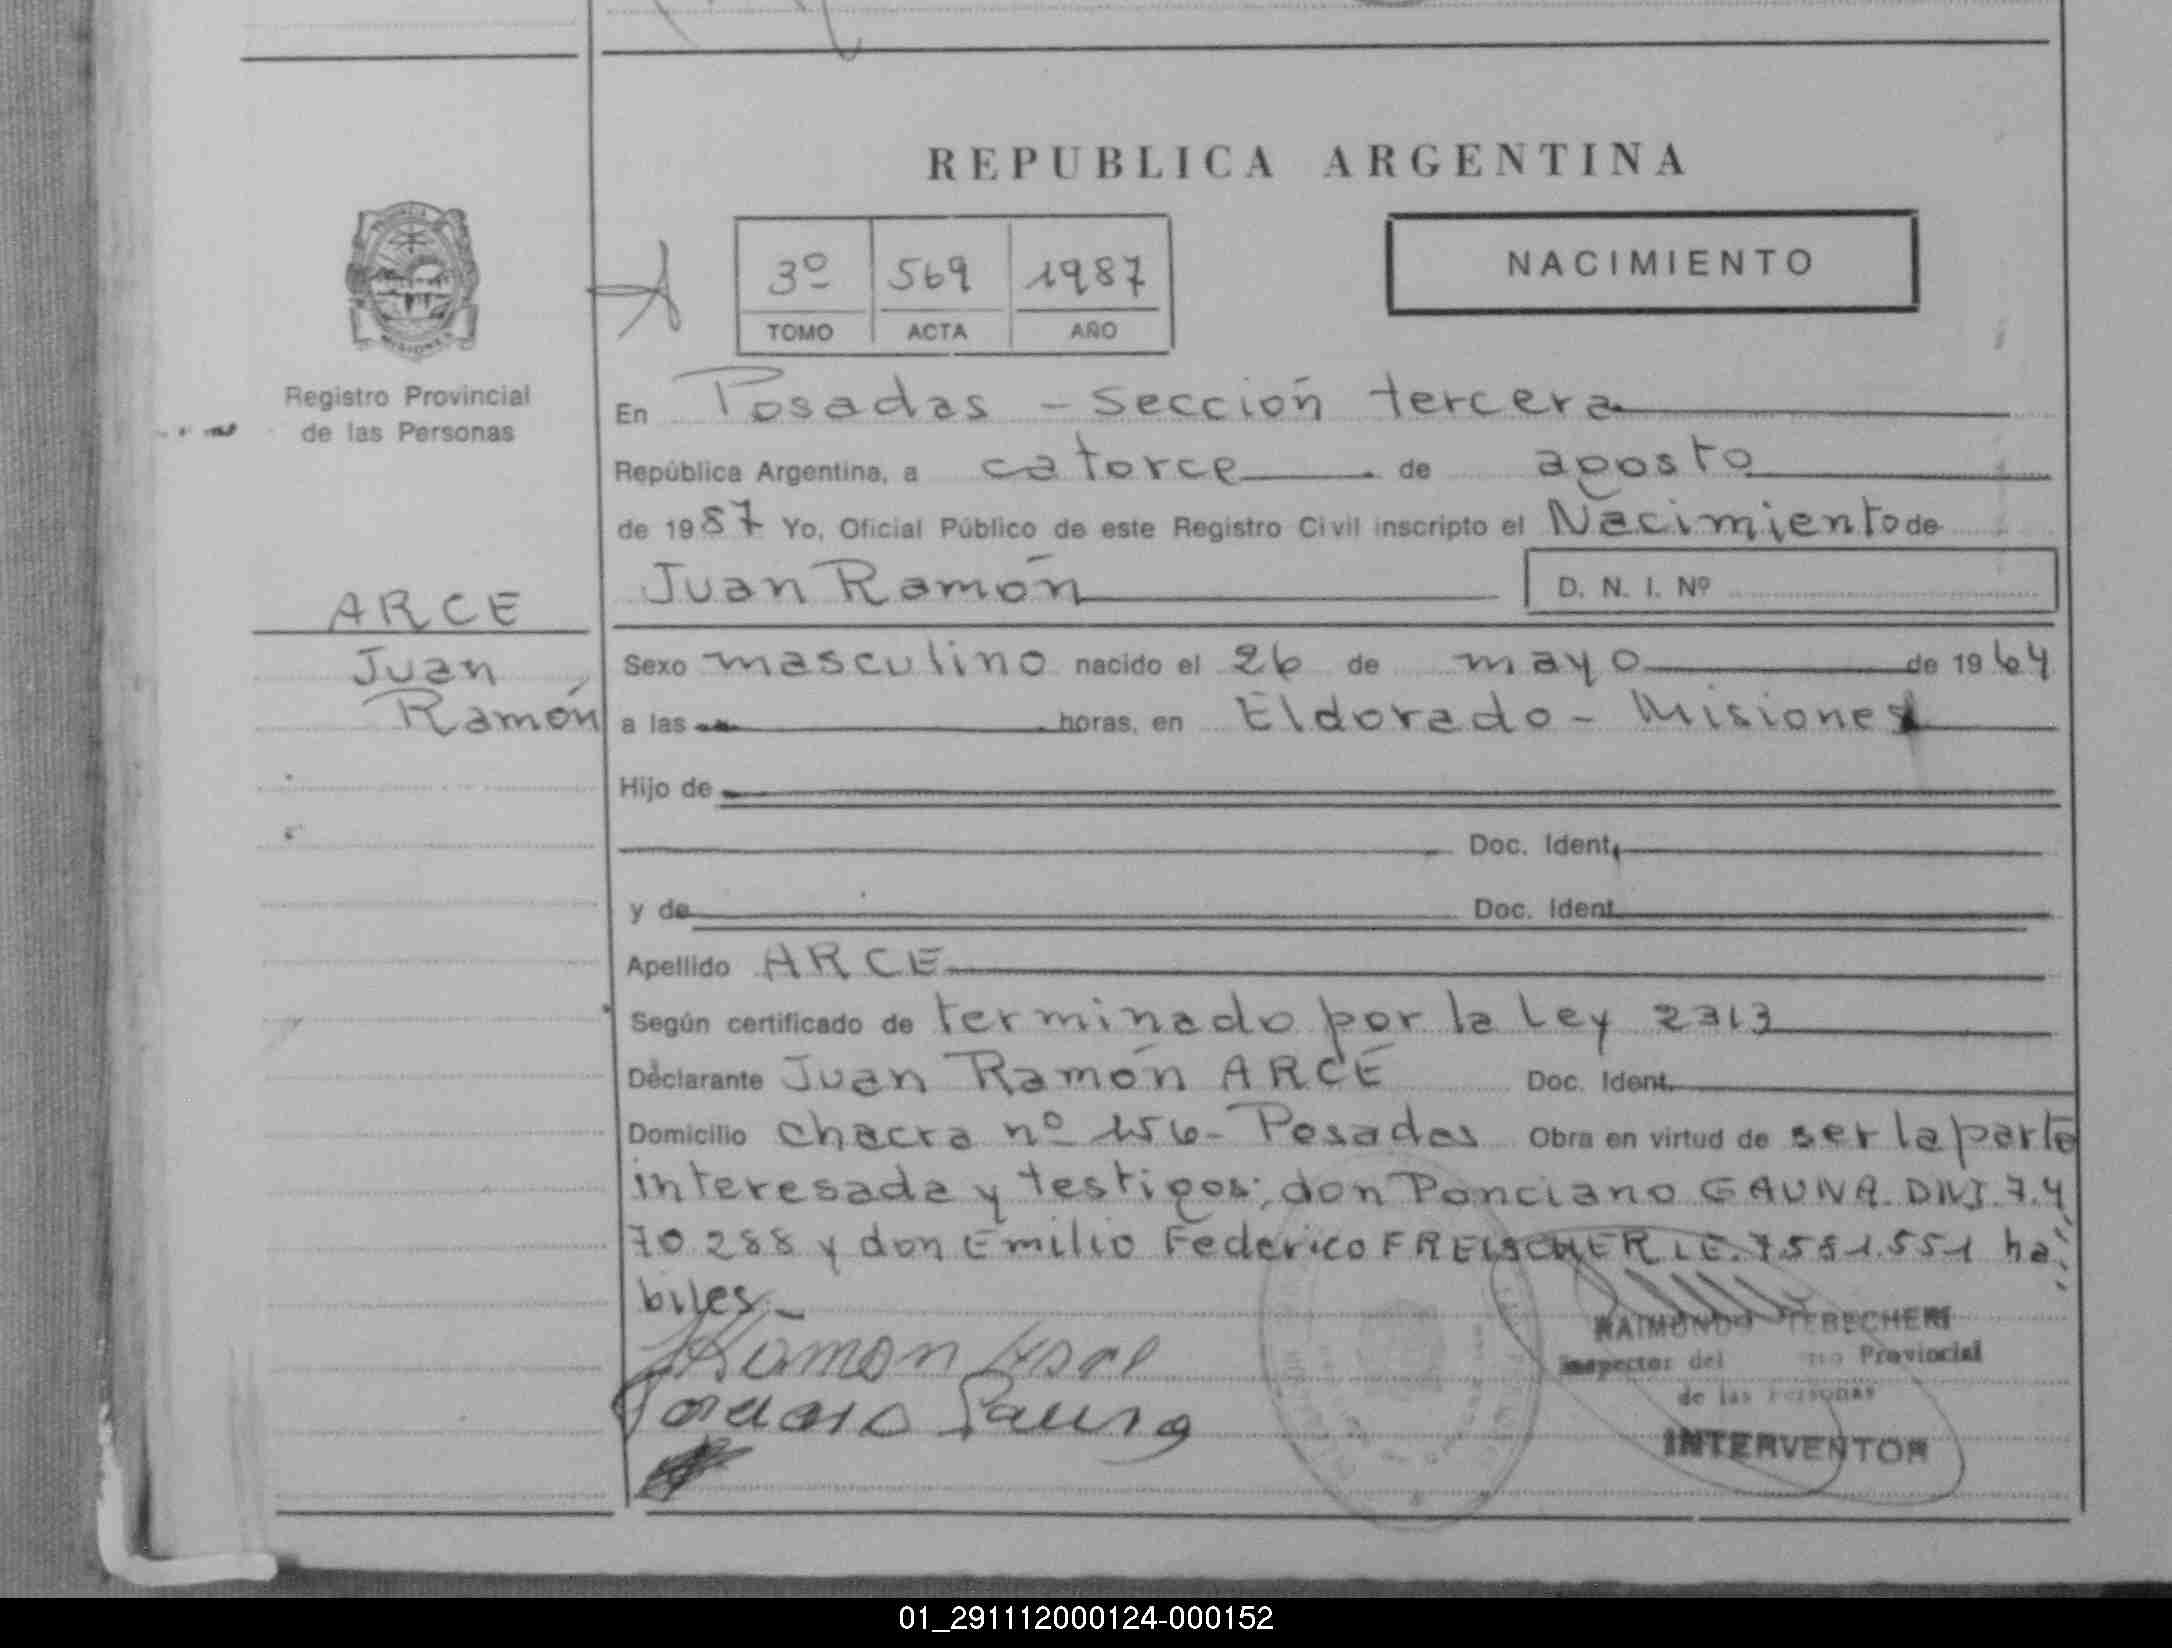 REPUBLICA ARGENTINA
3º 569 1987
TOMO ACTA AÑO
NACIMIENTO
Registro Provincial
de las Personas
En Posadas - Sección tercera
República Argentina, a catorce de agosto
de 1987 Yo, Oficial Público de este Registro Civil inscripto el Nacimiento de
Juan Ramón D. N. I. Nº
ARCE
Juan
Ramón
Sexo masculino nacido el 26 de mayo de 1964
a las horas, en Eldorado - Misiones
Hijo de
Doc. Ident.
y de Doc. Ident.
Apellido ARCE
Según certificado de terminado por la Ley 2313
Declarante Juan Ramón ARCE Doc. Ident.
Domicilio chacra nº 156- Posadas Obra en virtud de ser la parte
interesada y testigos; don Ponciano GAUNA. DNI. 7.4
70 288 y don Emilio Federico FREISCHER LE. 7551.551 há
biles.-
Ramon
RAIMUNDO TEBECHERI
Inspector del Provincial
de las Personas
INTERVENTOR
01_291112000124-000152